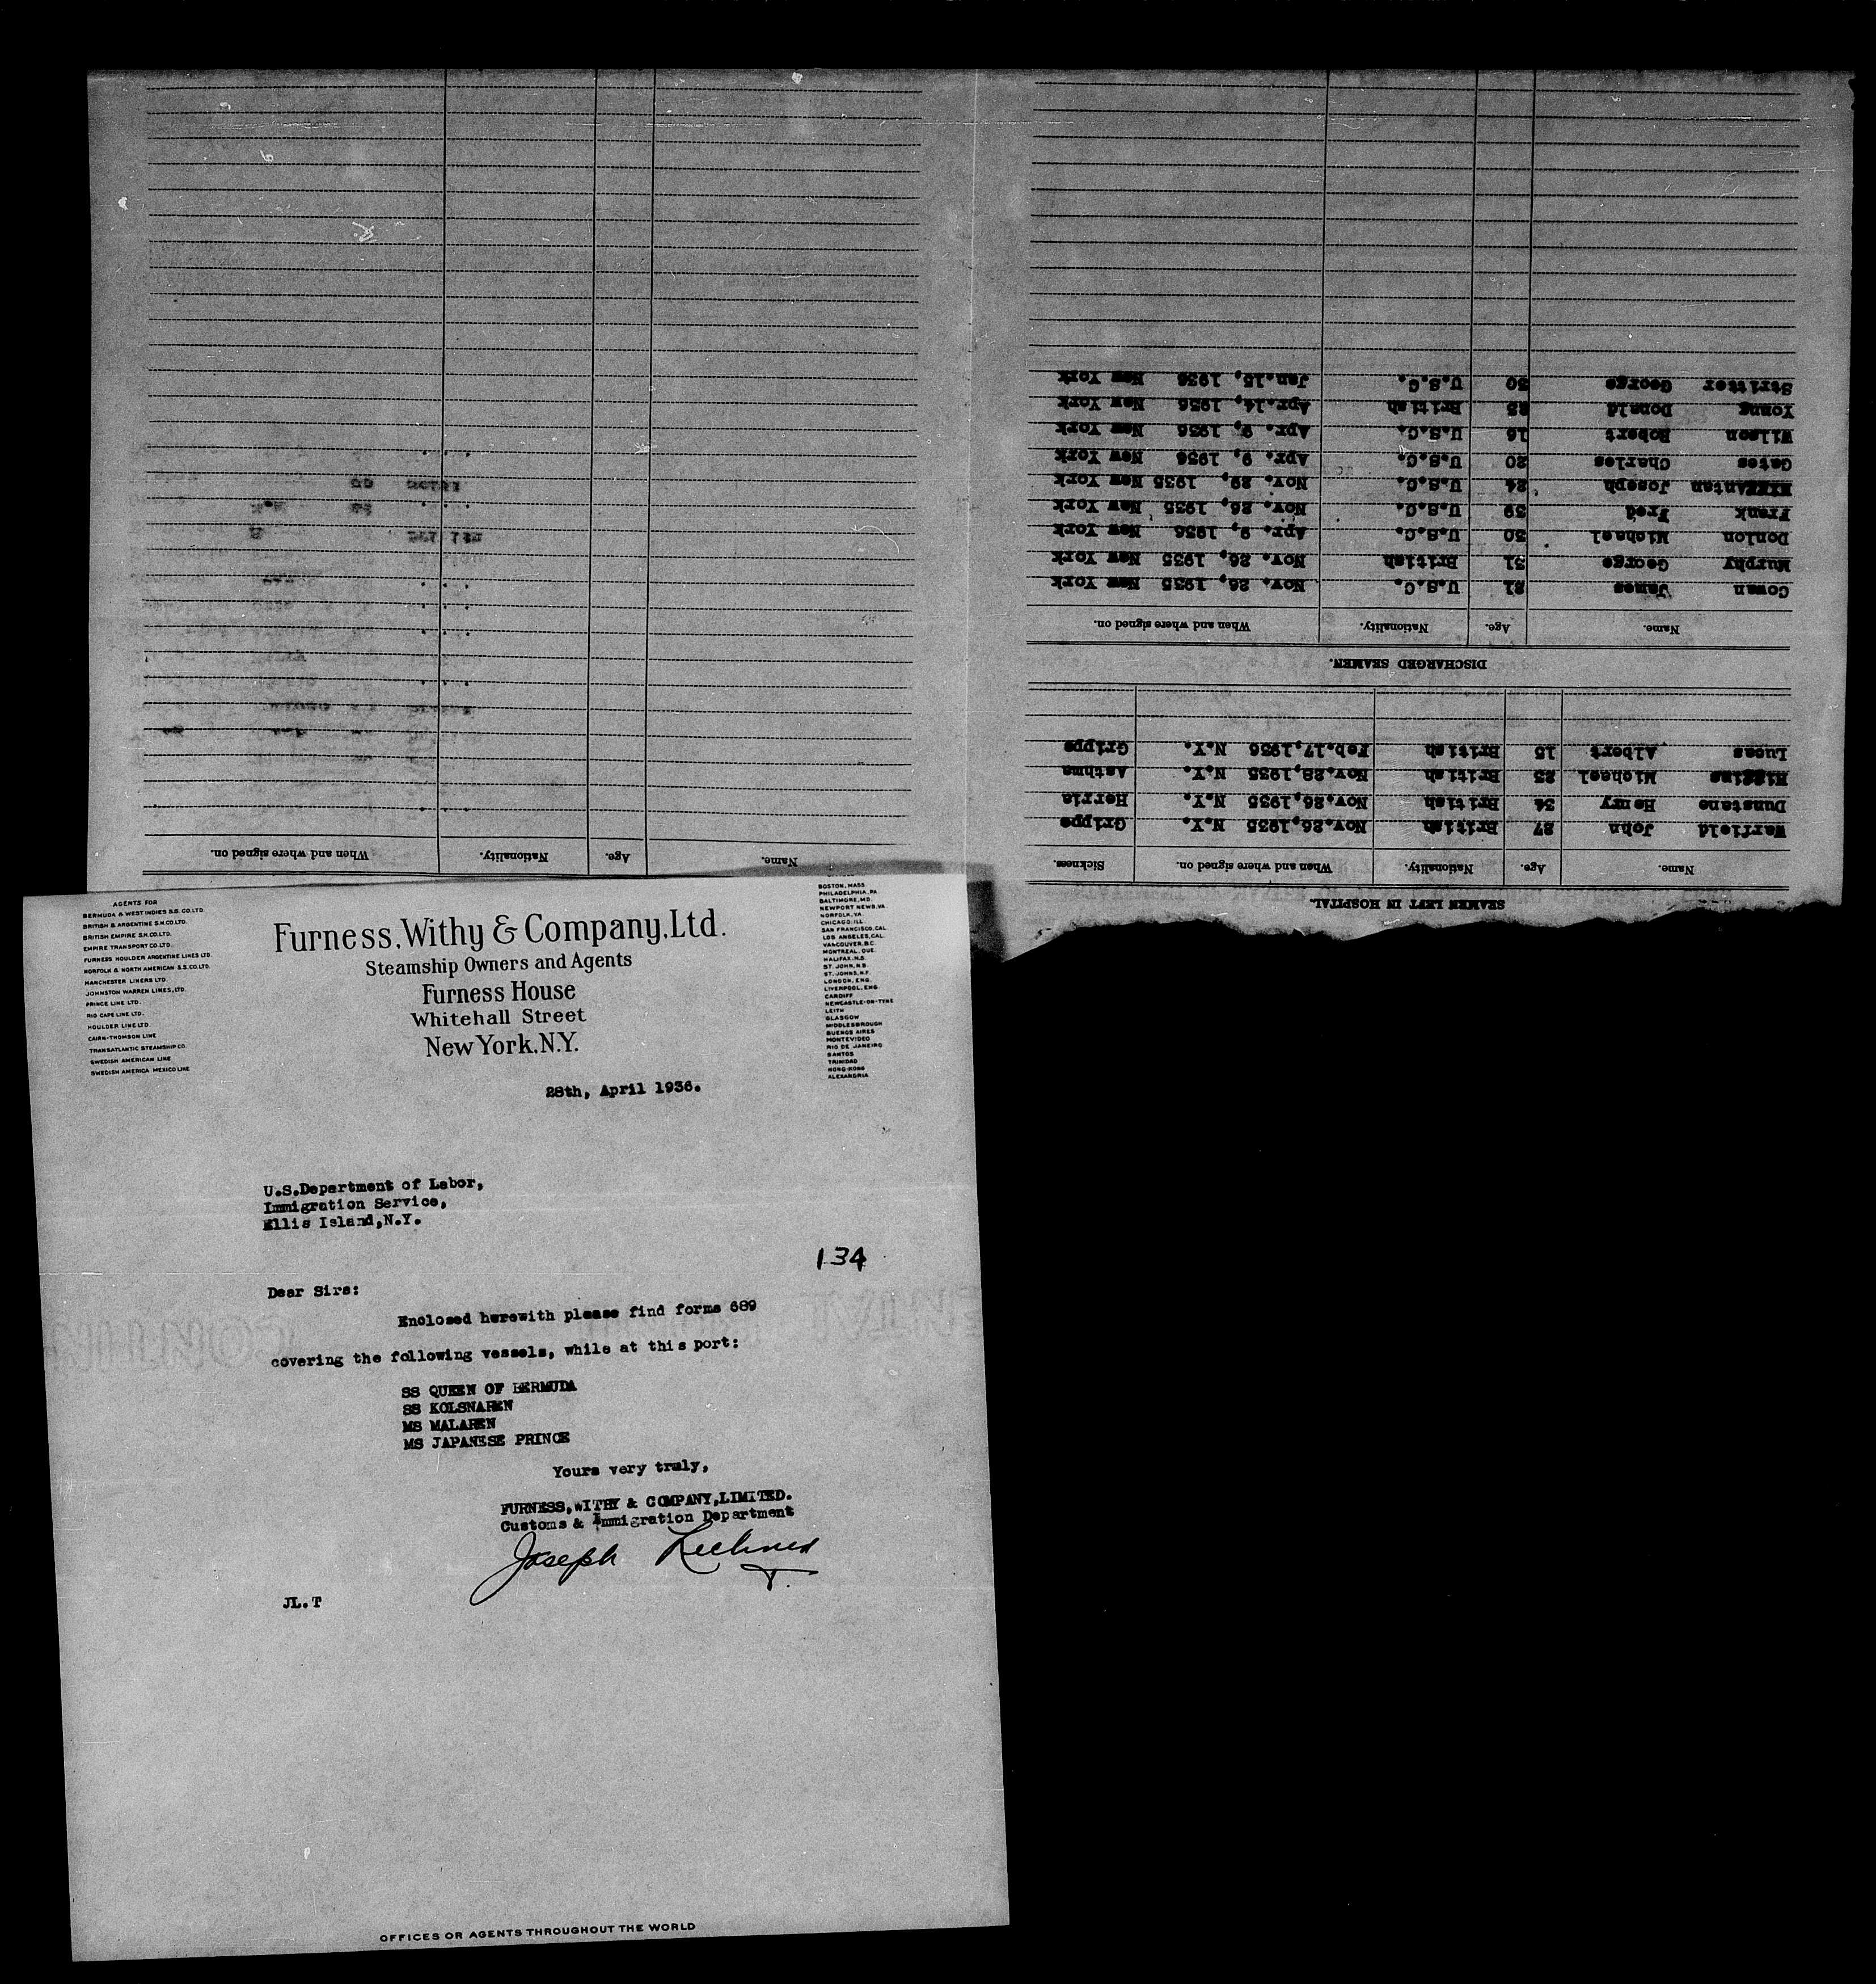 SEAMEN LEFT IN HOSPITAL
Name. Age. Nationality. When and where signed on. Sickness.
Warfield John 27 British Nov.26,1935 N.Y. Grippe
Dunstane Henry 34 British Nov.26,1935 N.Y. Hernia
Higgins Michael 23 British Nov.28,1935 N.Y. Asthma
Lucas Albert 15 British Feb.17,1936 N.Y. Grippe
DISCHARGED SEAMEN.
Name. Age. Nationality. When and where signed on.
Cowan James 21 U.S.C. Nov. 26, 1935 New York
Murphy George 31 British Nov. 26, 1935 New York
Donlon Michael 30 U.S.C. Apr. 9, 1936 New York
Frank Fred 39 U.S.C. Nov. 26, 1935 New York
Joseph 24 U.S.C. Nov. 29, 1935 New York
Gates Charles 20 U.S.C. Apr. 9, 1936 New York
Wilson Robert 16 U.S.C. Apr. 9, 1936 New York
Young Donald British Apr.14, 1936 New York
Stritter George 30 U.S.C. Jan.15, 1936 New York
Name. Age. Nationality. When and where signed on.
AGENTS FOR
BERMUDA & WEST INDIES S.S. CO.LTD.
BRITISH & ARGENTINE S.N.CO.LTD.
BRITISH EMPIRE S.N.CO.LTD.
EMPIRE TRANSPORT CO.LTD.
FURNESS HOULDER ARGENTINE LINES LTD.
NORFOLK & NORTH AMERICAN S.S.CO.LTD.
MANCHESTER LINERS LTD.
JOHNSTON WARREN LINES, LTD.
PRINCE LINE LTD.
RIO CAPE LINE LTD.
HOULDER LINE LTD.
CAIRN-THOMSON LINE
TRANSATLANTIC STEAMSHIP CO.
SWEDISH AMERICAN LINE
SWEDISH AMERICA MEXICO LINE
Furness, Withy & Company, Ltd.
Steamship Owners and Agents
Furness House
Whitehall Street
New York, N.Y.
BOSTON, MASS.
PHILADELPHIA, PA.
BALTIMORE, MD.
NEWPORT NEWS, VA.
NORFOLK, VA.
CHICAGO, ILL.
SAN FRANCISCO, CAL.
LOS ANGELES, CAL.
VANCOUVER, B.C.
MONTREAL, QUE.
HALIFAX, N.S.
ST. JOHN, N.B.
ST. JOHNS, N.F.
LONDON, ENG.
LIVERPOOL, ENG.
CARDIFF
NEWCASTLE-ON-TYNE
LEITH
GLASGOW
MIDDLESBROUGH
BUENOS AIRES
MONTEVIDEO
RIO DE JANEIRO
SANTOS
TRINIDAD
HONG-KONG
ALEXANDRIA
28th, April 1936.
U.S.Department of Labor,
Immigration Service,
Ellis Island,N.Y.
134
Dear Sirs:
Enclosed herewith please find forms 689
covering the following vessels, while at this port:
SS QUEEN OF BERMUDA
SS KOLSNAREN
MS MALAREN
MS JAPANESE PRINCE
Yours very truly,
FURNESS,WITHY & COMPANY,LIMITED.
Customs & Immigration Department
Joseph Lechner
T.
JL.T
OFFICES OR AGENTS THROUGHOUT THE WORLD